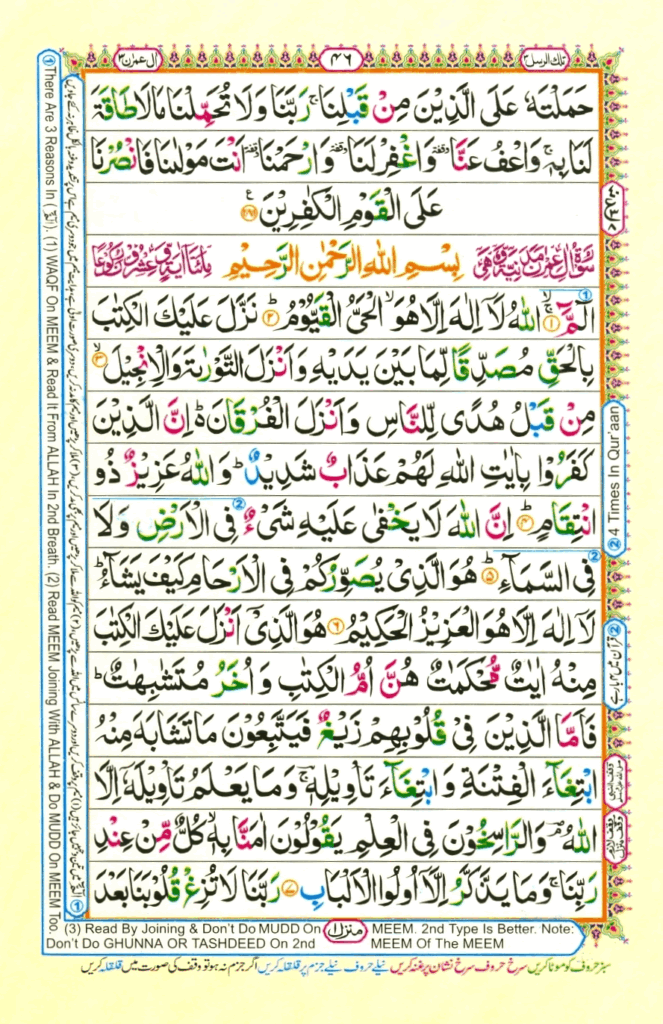 اٰل عمرٰن ٣
٤٦
تلك الرسل ٣
حَمَلْتَهٗ عَلَى الَّذِيْنَ مِنْ قَبْلِنَا ۚ رَبَّنَا وَلَا تُحَمِّلْنَا مَا لَا طَاقَةَ
لَنَا بِهٖ ۚ وَاعْفُ عَنَّا ۥ وَاغْفِرْ لَنَا ۥ وَارْحَمْنَا ۥ اَنْتَ مَوْلٰىنَا فَانْصُرْنَا
عَلَى الْقَوْمِ الْكٰفِرِيْنَ ﴿٢٨٦﴾
بِسْمِ اللّٰهِ الرَّحْمٰنِ الرَّحِيْمِ
الٓمَّٓ ﴿١﴾ اللّٰهُ لَاۤ اِلٰهَ اِلَّا هُوَ ۙ الْحَىُّ الْقَيُّوْمُ ﴿٢﴾ نَزَّلَ عَلَيْكَ الْكِتٰبَ
بِالْحَقِّ مُصَدِّقًا لِّمَا بَيْنَ يَدَيْهِ وَاَنْزَلَ التَّوْرٰىةَ وَالْاِنْجِيْلَ ﴿٣﴾
مِنْ قَبْلُ هُدًى لِّلنَّاسِ وَاَنْزَلَ الْفُرْقَانَ ؕ اِنَّ الَّذِيْنَ
كَفَرُوْا بِاٰيٰتِ اللّٰهِ لَهُمْ عَذَابٌ شَدِيْدٌ ؕ وَاللّٰهُ عَزِيْزٌ ذُو
انْتِقَامٍ ﴿٤﴾ اِنَّ اللّٰهَ لَا يَخْفٰى عَلَيْهِ شَىْءٌ فِى الْاَرْضِ وَلَا
فِى السَّمَآءِ ﴿٥﴾ هُوَ الَّذِىْ يُصَوِّرُكُمْ فِى الْاَرْحَامِ كَيْفَ يَشَآءُ ؕ
لَاۤ اِلٰهَ اِلَّا هُوَ الْعَزِيْزُ الْحَكِيْمُ ﴿٦﴾ هُوَ الَّذِىْۤ اَنْزَلَ عَلَيْكَ الْكِتٰبَ
مِنْهُ اٰيٰتٌ مُّحْكَمٰتٌ هُنَّ اُمُّ الْكِتٰبِ وَاُخَرُ مُتَشٰبِهٰتٌ ؕ
فَاَمَّا الَّذِيْنَ فِىْ قُلُوْبِهِمْ زَيْغٌ فَيَتَّبِعُوْنَ مَا تَشَابَهَ مِنْهُ
ابْتِغَآءَ الْفِتْنَةِ وَابْتِغَآءَ تَاْوِيْلِهٖ ۚ وَمَا يَعْلَمُ تَاْوِيْلَهٗۤ اِلَّا
اللّٰهُ ۘ وَالرّٰسِخُوْنَ فِى الْعِلْمِ يَقُوْلُوْنَ اٰمَنَّا بِهٖ ۙ كُلٌّ مِّنْ عِنْدِ
رَبِّنَا ۚ وَمَا يَذَّكَّرُ اِلَّاۤ اُولُوا الْاَلْبَابِ ﴿٧﴾ رَبَّنَا لَا تُزِغْ قُلُوْبَنَا بَعْدَ
② 4 Times In Qur'aan
① There Are 3 Reasons In (الٓمّٓ). (1) WAQF On MEEM & Read It From ALLAH In 2nd Breath. (2) Read MEEM Joining With ALLAH & Do MUDD On MEEM Too.
(3) Read By Joining & Don't Do MUDD On MEEM. 2nd Type Is Better. Note:
Don't Do GHUNNA OR TASHDEED On 2nd MEEM Of The MEEM
منزل ١
سبز حروف کو موٹا کریں سرخ حروف سرخ نشان پر غنہ کریں نیلے حروف نیلے جزم پر قلقلہ کریں اگر جزم نہ ہو تو وقف کی صورت میں قلقلہ کریں